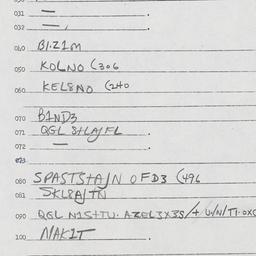 031 —
032 —
040 BI.Z1M
050 KOLNO (306
060 KEL8NO (240
070 B1ND3
071 QGL 8+LAJFL
072 —
073
080 SPAST5+AJN OFD3 (496
081 SKL8AJTN
090 QGL N1S+TU. AZEL3X3S/+ U/N/TI.OXO
100 MAK1T